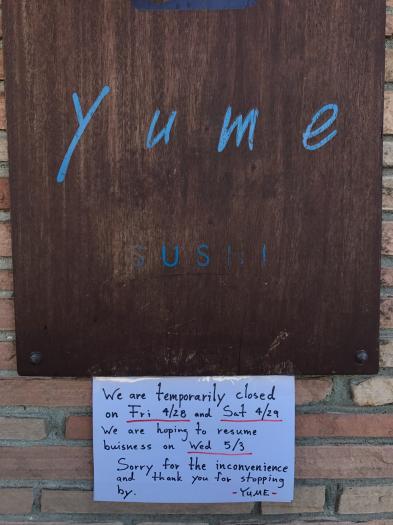 yume
SUSHI
We are temporarily closed
on Fri 4/28 and Sat 4/29
We are hoping to resume
buisness on Wed 5/3
Sorry for the inconvenience
and thank you for stopping
by. -YUME-